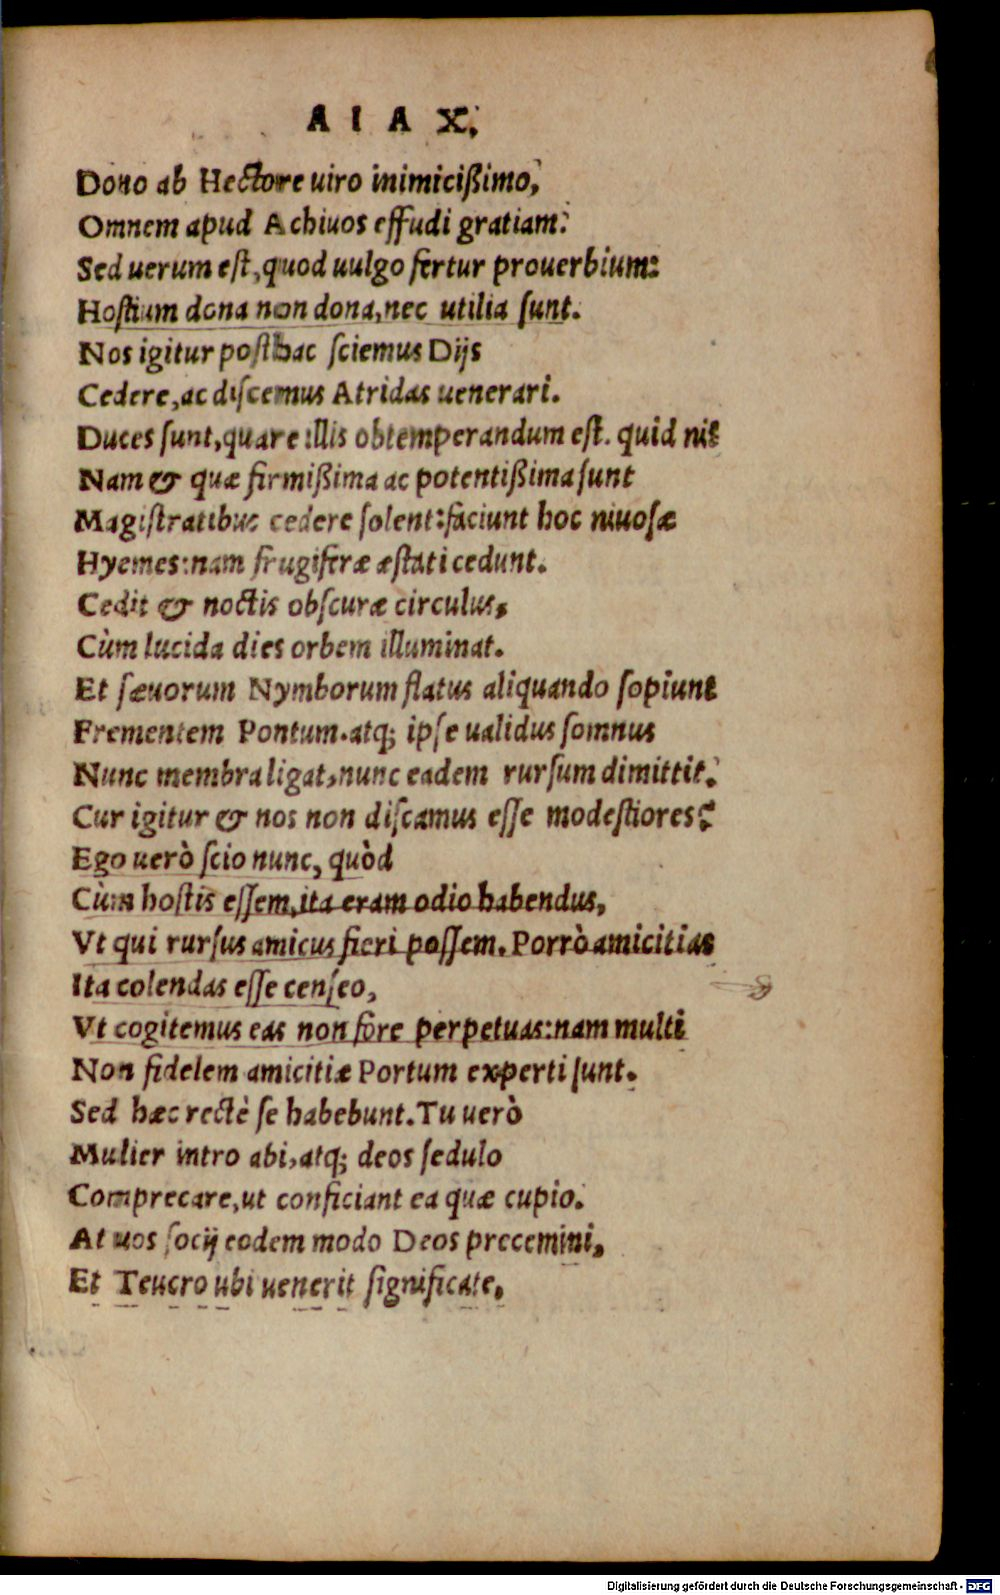 AIAX.
Dono ab Hectore uiro inimicißimo,
Omnem apud Achiuos effudi gratiam:
Sed uerum est, quod uulgo fertur prouerbium:
Hostium dona non dona, nec utilia sunt.
Nos igitur posthac sciemus Dijs
Cedere, ac discemus Atridas uenerari.
Duces sunt, quare illis obtemperandum est. quid ni?
Nam & quæ firmißima ac potentißima sunt
Magistratibus cedere solent: faciunt hoc niuosæ
Hyemes: nam frugiferæ æstati cedunt.
Cedit & noctis obscuræ circulus,
Cùm lucida dies orbem illuminat.
Et sæuorum Nymborum flatus aliquando sopiunt
Frementem Pontum. atq; ipse ualidus somnus
Nunc membra ligat, nunc eadem rursum dimittit:
Cur igitur & nos non discamus esse modestiores?
Ego uerò scio nunc, quòd
Cùm hostis essem, ita eram odio habendus,
Vt qui rursus amicus fieri possem. Porrò amicitias
Ita colendas esse censeo,
Vt cogitemus eas non fore perpetuas: nam multi
Non fidelem amicitiæ Portum experti sunt.
Sed hæc rectè se habebunt. Tu uerò
Mulier intro abi, atq; deos sedulo
Comprecare, ut conficiant ea quæ cupio.
At uos socij eodem modo Deos precemini,
Et Teucro ubi uenerit significate,
Digitalisierung gefördert durch die Deutsche Forschungsgemeinschaft - DFG